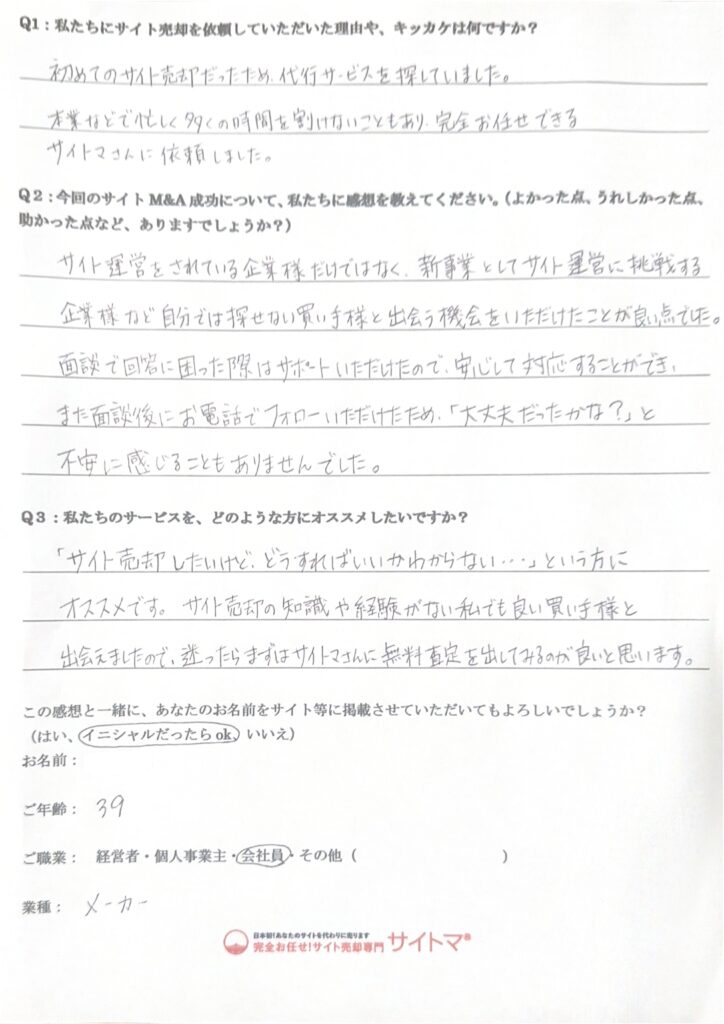 Q1：私たちにサイト売却を依頼していただいた理由や、キッカケは何ですか？
初めてのサイト売却だったため、代行サービスを探していました。
本業などで忙しく多くの時間を割けないこともあり、完全お任せできる
サイトマさんに依頼しました。
Q2：今回のサイト M&A 成功について、私たちに感想を教えてください。（よかった点、うれしかった点、
助かった点など、ありますでしょうか？）
サイト運営をされている企業様だけではなく、新事業としてサイト運営に挑戦する
企業様など自分では探せない買い手様と出会う機会をいただけたことが良い点でした。
面談で回答に困った際はサポートいただけたので、安心して対応することができ、
また面談後にお電話でフォローいただけたため、「大丈夫だったかな？」と
不安に感じることもありませんでした。
Q3：私たちのサービスを、どのような方にオススメしたいですか？
「サイト売却したいけど、どうすればいいかわからない・・・」という方に
オススメです。サイト売却の知識や経験がない私でも良い買い手様と
出会えましたので、迷ったらまずはサイトマさんに無料査定を出してみるのが良いと思います。
この感想と一緒に、あなたのお名前をサイト等に掲載させていただいてもよろしいでしょうか？
（はい、イニシャルだったら ok、いいえ）
お名前：
ご年齢： 39
ご職業： 経営者・個人事業主・会社員・その他（ ）
業種： メーカー
日本初！あなたのサイトを代わりに売ります
完全お任せ！サイト売却専門 サイトマ®